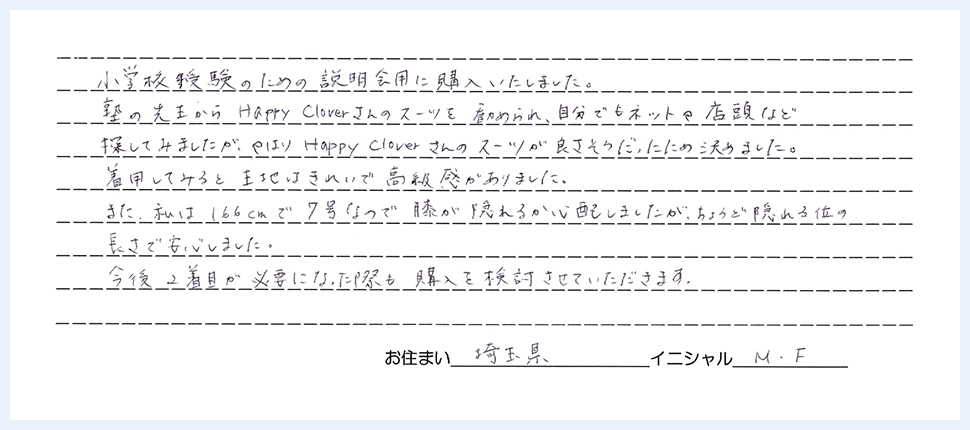 小学校受験のための説明会用に購入いたしました。
塾の先生から Happy Cloverさんのスーツを勧められ、自分でもネットや店頭など
探してみましたが、やはり Happy Clover さんのスーツが良さそうだったため決めました。
着用してみると生地はきれいで高級感がありました。
また、私は 166cmで 7号なので膝が隠れるか心配しましたが、ちょうど隠れる位の
長さで安心しました。
今後 2着目が必要になった際も購入を検討させていただきます。
お住まい 埼玉県 イニシャル M.F